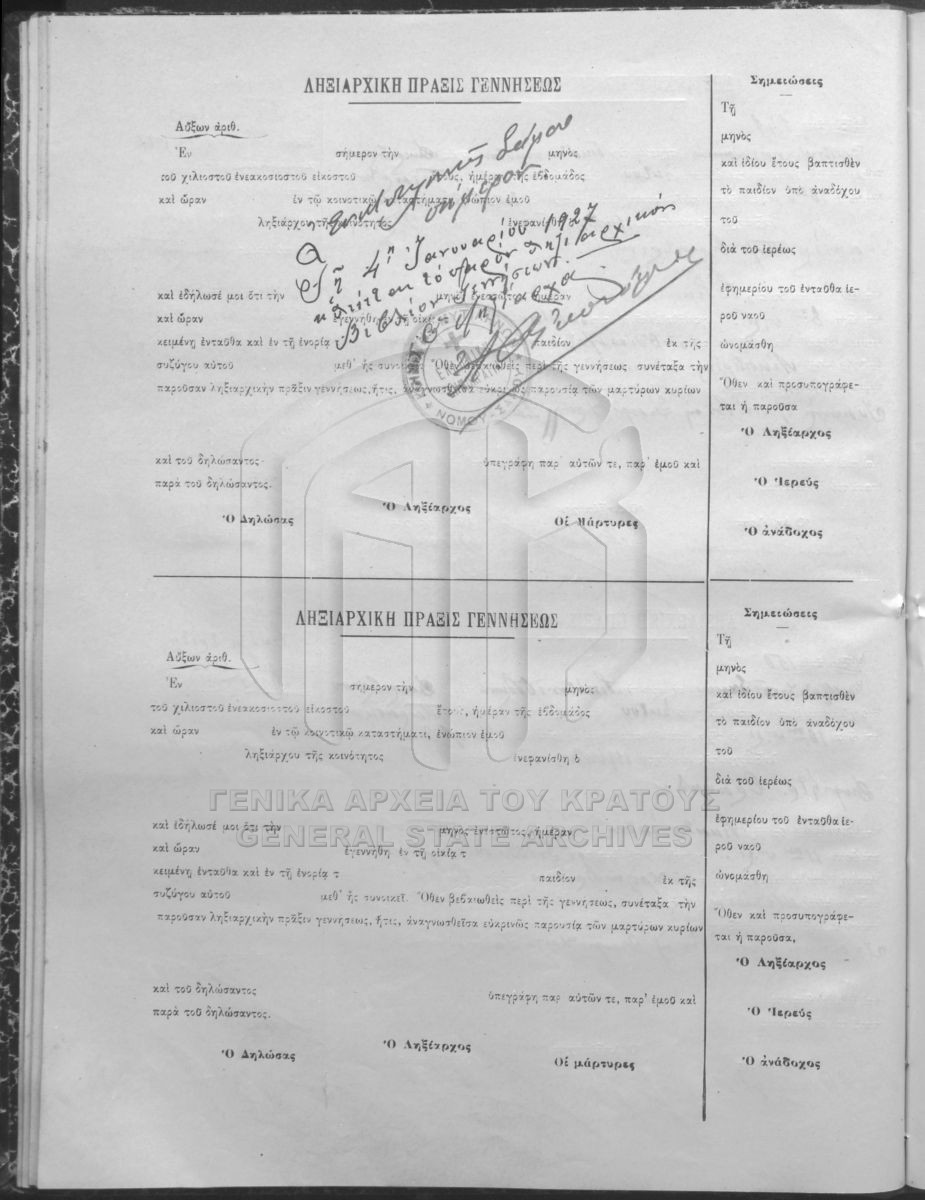 ΛΗΞΙΑΡΧΙΚΗ ΠΡΑΞΙΣ ΓΕΝΝΗΣΕΩΣ
Αὔξων ἀριθ.
Ἐν σήμερον τὴν μηνὸς
τοῦ χιλιοστοῦ ἐνεακοσιοστοῦ εἰκοστοῦ ἔτους, ἡμέραν τῆς ἑβδομάδος
καὶ ὥραν ἐν τῷ κοινοτικῷ καταστήματι, ἐνώπιον ἐμοῦ
ληξιάρχου τῆς κοινότητος ἐνεφανίσθη ὁ
σήμερον
τῇ 4ῃ Ἰανουαρίου 1927
τὸ παρὸν ληξιαρχικὸν
Βιβλίον Γεννήσεων.
Ὁ Ληξίαρχος
καὶ ἐδήλωσέ μοι ὅτι τὴν μηνὸς ἐνεστῶτος, ἡμέραν
καὶ ὥραν ἐγεννήθη ἐν τῇ οἰκίᾳ τ
κειμένῃ ἐνταῦθα καὶ ἐν τῇ ἐνορίᾳ παιδίον ἐκ τῆς
συζύγου αὐτοῦ μεθ' ἧς συνοικεῖ. Ὅθεν βεβαιωθεὶς περὶ τῆς γεννήσεως συνέταξα τὴν
παροῦσαν ληξιαρχικὴν πρᾶξιν γεννήσεως, ἥτις, ἀναγνωσθεῖσα εὐκρινῶς παρουσίᾳ τῶν μαρτύρων κυρίων
ΝΟΜΟΥ
καὶ τοῦ δηλώσαντος ὑπεγράφη παρ' αὐτῶν τε, παρ' ἐμοῦ καὶ
παρὰ τοῦ δηλώσαντος.
Ὁ Δηλώσας Ὁ Ληξίαρχος Οἱ Μάρτυρες
Σημειώσεις
Τῇ
μηνὸς
καὶ ἰδίου ἔτους βαπτισθὲν
τὸ παιδίον ὑπὸ ἀναδόχου
τοῦ
διὰ τοῦ ἱερέως
ἐφημερίου τοῦ ἐνταῦθα ἱε-
ροῦ ναοῦ
ὠνομάσθη
Ὅθεν καὶ προσυπογράφε-
ται ἡ παροῦσα
Ὁ Ληξίαρχος
Ὁ Ἱερεύς
Ὁ ἀνάδοχος
ΛΗΞΙΑΡΧΙΚΗ ΠΡΑΞΙΣ ΓΕΝΝΗΣΕΩΣ
Αὔξων ἀριθ.
Ἐν σήμερον τὴν μηνὸς
τοῦ χιλιοστοῦ ἐνεακοσιοστοῦ εἰκοστοῦ ἔτους, ἡμέραν τῆς ἑβδομάδος
καὶ ὥραν ἐν τῷ κοινοτικῷ καταστήματι, ἐνώπιον ἐμοῦ
ληξιάρχου τῆς κοινότητος ἐνεφανίσθη ὁ
ΓΕΝΙΚΑ ΑΡΧΕΙΑ ΤΟΥ ΚΡΑΤΟΥΣ
GENERAL STATE ARCHIVES
καὶ ἐδήλωσέ μοι ὅτι τὴν μηνὸς ἐνεστῶτος, ἡμέραν
καὶ ὥραν ἐγεννήθη ἐν τῇ οἰκίᾳ τ
κειμένῃ ἐνταῦθα καὶ ἐν τῇ ἐνορίᾳ τ παιδίον ἐκ τῆς
συζύγου αὐτοῦ μεθ' ἧς συνοικεῖ. Ὅθεν βεβαιωθεὶς περὶ τῆς γεννήσεως, συνέταξα τὴν
παροῦσαν ληξιαρχικὴν πρᾶξιν γεννήσεως, ἥτις, ἀναγνωσθεῖσα εὐκρινῶς παρουσίᾳ τῶν μαρτύρων κυρίων
καὶ τοῦ δηλώσαντος ὑπεγράφη παρ' αὐτῶν τε, παρ' ἐμοῦ καὶ
παρὰ τοῦ δηλώσαντος.
Ὁ Δηλώσας Ὁ Ληξίαρχος Οἱ μάρτυρες
Σημειώσεις
Τῇ
μηνὸς
καὶ ἰδίου ἔτους βαπτισθὲν
τὸ παιδίον ὑπὸ ἀναδόχου
τοῦ
διὰ τοῦ ἱερέως
ἐφημερίου τοῦ ἐνταῦθα ἱε-
ροῦ ναοῦ
ὠνομάσθη
Ὅθεν καὶ προσυπογράφε-
ται ἡ παροῦσα,
Ὁ Ληξίαρχος
Ὁ Ἱερεύς
Ὁ ἀνάδοχος